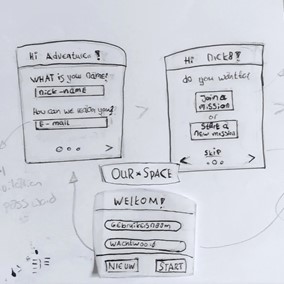 Hi Adventurer!
WHAT is your Name?
nick-name
How can we reach you?
E-mail
Hi Nick8!
do you want to:
Join a
mission
or
Start a
new mission
skip
OUR*SPACE
WELKOM!
Gebruikersnaam
Wachtwoord
NIEUW
START